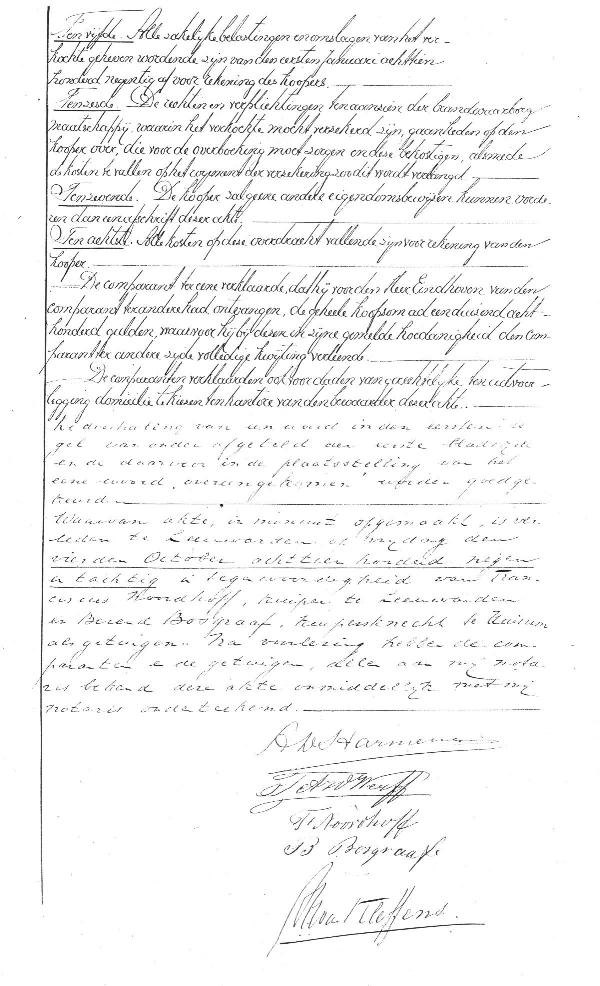 Ten vijfde. Alle zakelijke belastingen en omslagen van het ver-
kochte geheven wordende zijn van den eersten Januari achttien
honderd negentig af voor rekening des koopers.
Ten zesde. De rechten en verplichtingen ten aanzien der brandwaarborg
maatschappij, waarin het verkochte mocht verzekerd zijn, gaan heden op den
kooper over, die voor de overboeking moet zorgen en deze bekostigen, alsmede
de kosten te vallen op het royement der verzekering zoo dit wordt verlangd.
Ten zevende. De kooper zal geene andere eigendomsbewijzen kunnen vorde-
ren dan een afschrift dezer acte.
Ten achtste. Alle kosten op deze overdracht vallende zijn voor rekening van den
kooper.
De comparant ter eene verklaarde, dat hij voor den Heer Eindhoven van den
comparant ter andere had ontvangen, de geheele koopsom ad een duizend acht-
honderd gulden, waarvoor hij bij dezen in zijne gemelde hoedanigheid den com-
parant ter andere zijde volledige kwijting verleende.
De comparanten verklaarden ook voor daden van gerechtelijke ten uitvoer-
legging domicilie te kiezen ten kantore van den bewaarder dezer acte.
De doorhaling van een woord in den eersten re-
gel van onder afgeteld der eerste bladzijde
en de daarvoor in de plaatsstelling van het
eene woord "overeengekomen" worden goedge-
keurd.
Waarvan akte, in minuut opgemaakt, is ver-
leden te Leeuwarden op vrijdag den
vierden October achttien honderd negen
en tachtig in tegenwoordigheid van Fran-
ciscus Noordhoff, kuiper te Leeuwarden
en Berend Bosgraaf, kuipersknecht te Huizum
als getuigen. Na voorlezing hebben de com-
paranten en de getuigen, allen aan mij nota-
ris bekend deze akte onmiddelijk met mij
notaris onderteekend.
Harmens
Werff
F Noordhoff
B Bosgraaf
van Kleffens.